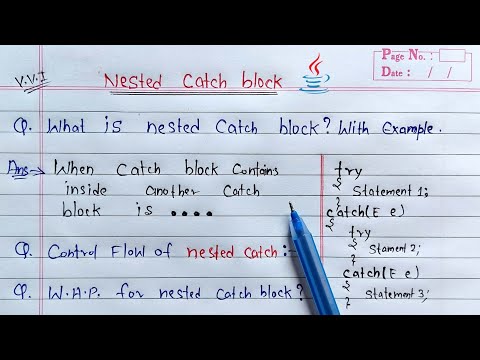 Page No.:
Date: / /
V.V.I
Nested Catch block
Q. What is nested Catch block? With Example.
Ans→ When Catch block Contains
inside another Catch
block is ....
try
{
Statement 1;
}
catch(E e)
{
try
{
Stament 2;
}
catch(E e)
{
Statement 3;
}
Q. Control Flow of nested catch:-
Q. W.A.P. for nested Catch block?